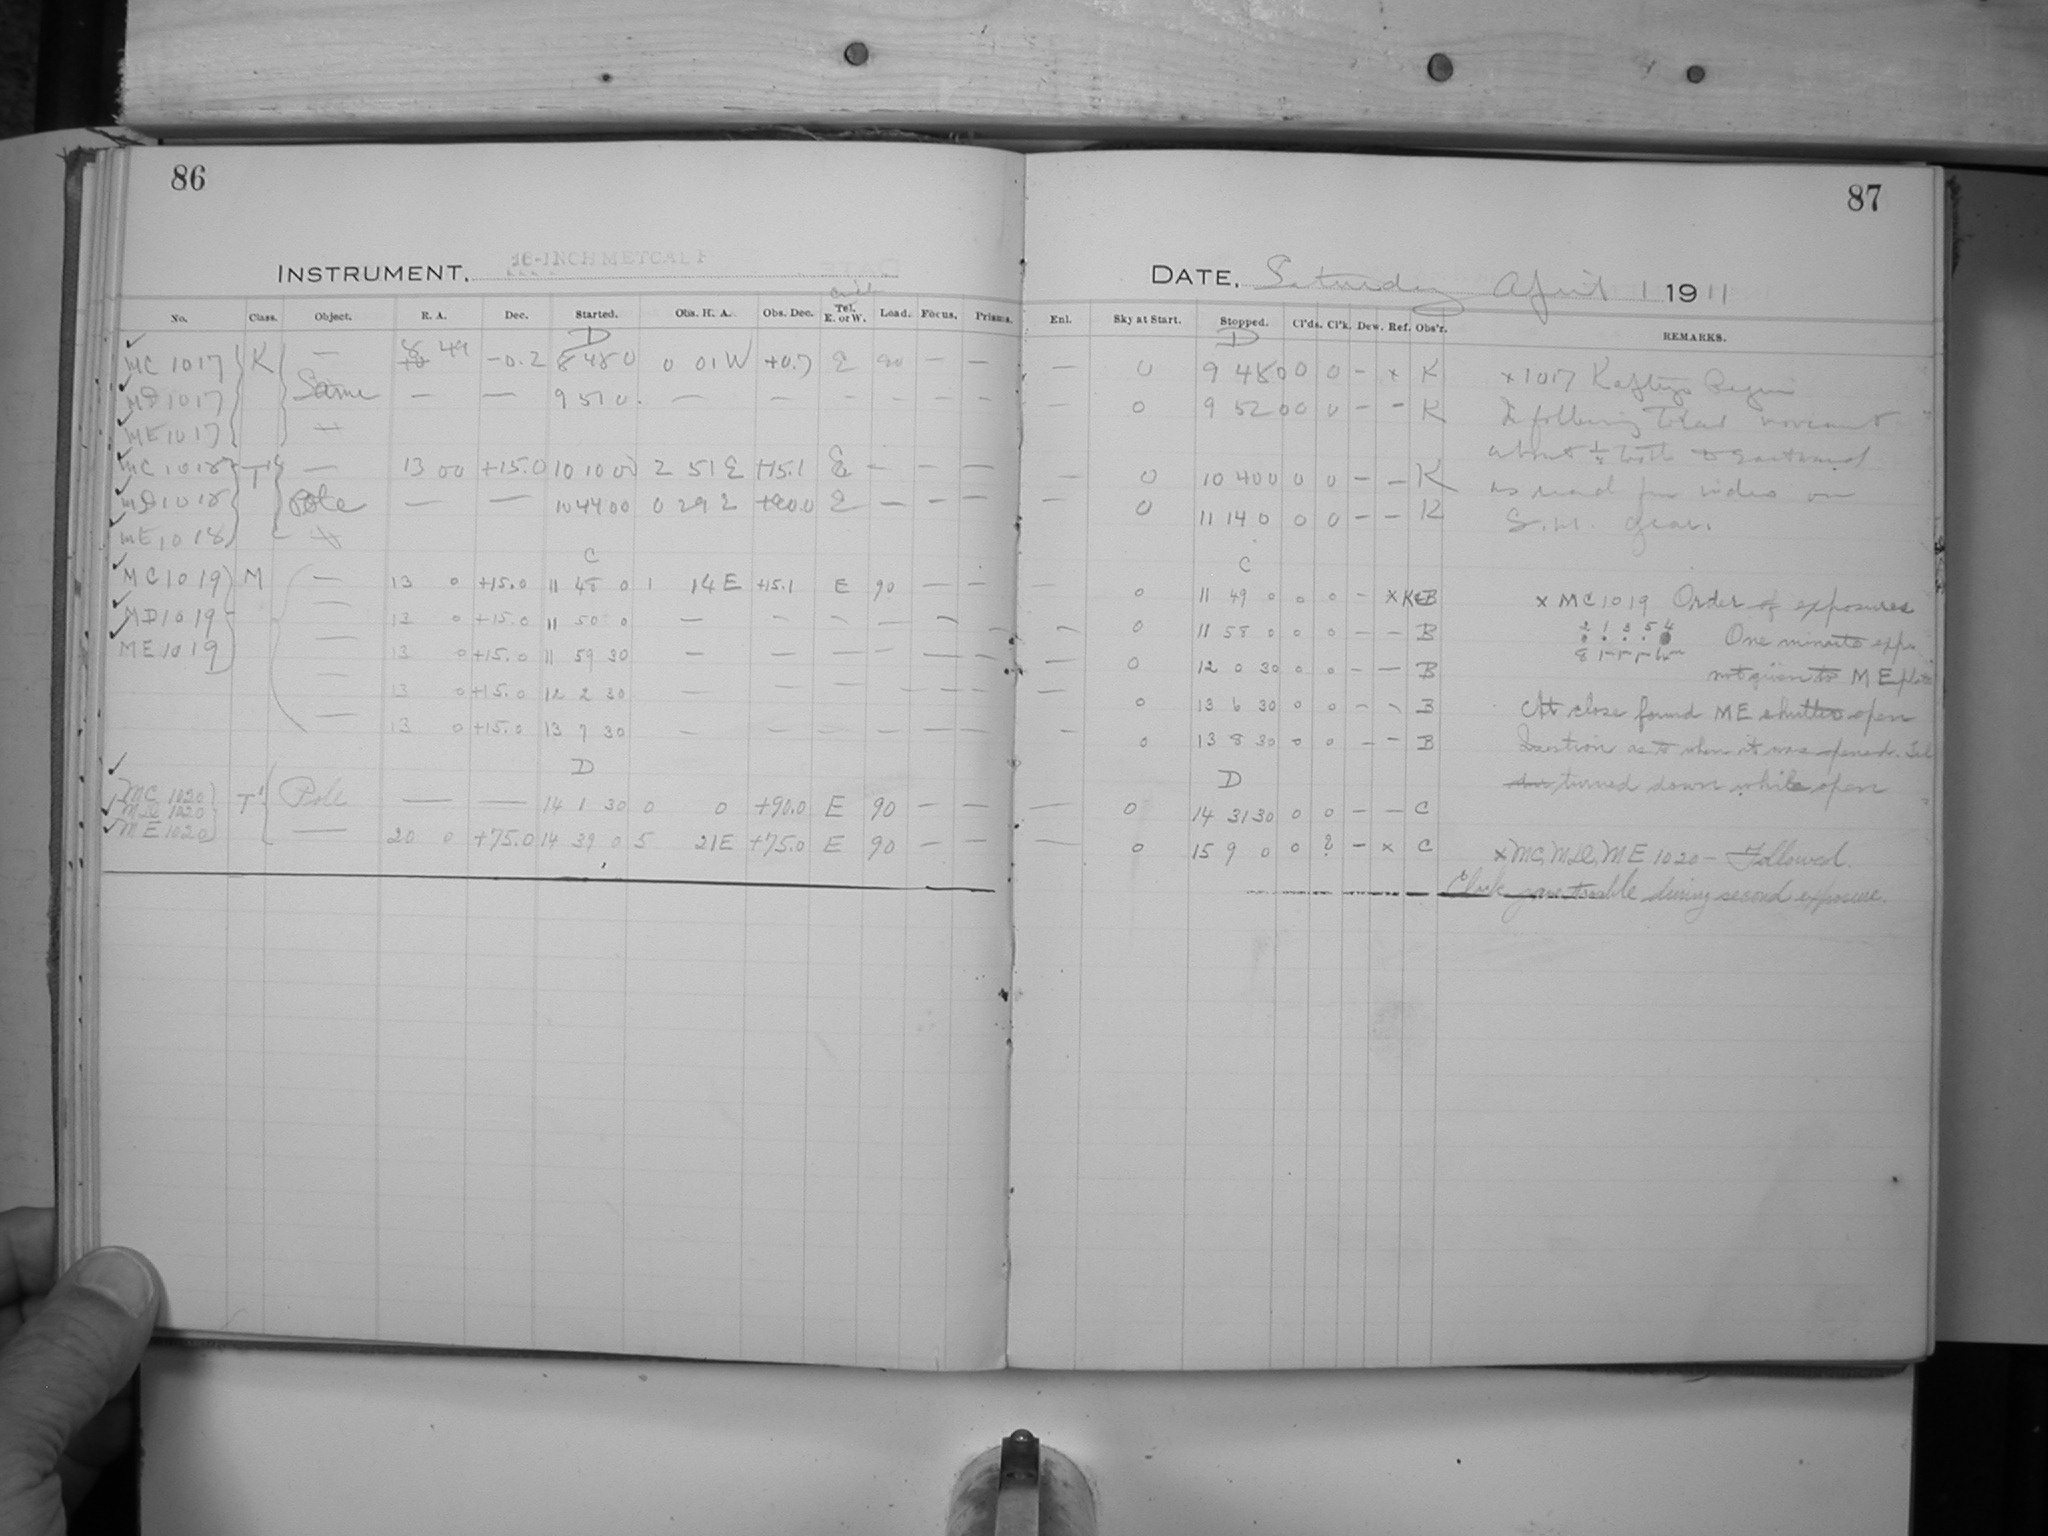 86
INSTRUMENT, 16-INCH METCALF
No. Class. Object. R. A. Dec. Started. Obs. H. A. Obs. Dec. Tel. E. or W. Load. Focus. Prisms.
D
MC 1017 K — 8 49 -0.2 8 48 0 0 01 W +0.7 E 90 — —
MD 1017 Same — — 9 51 0 — — - - - -
ME 1017
MC 1018 T' — 13 00 +15.0 10 10 00 2 51 E +15.1 E — — —
MD 1018 Pole — — 10 44 00 0 29 E +90.0 E — — —
ME 1018
C
MC 1019 M — 13 0 +15.0 11 48 0 1 14 E +15.1 E 90 — —
MD 1019 — 13 0 +15.0 11 50 0 — — — — — —
ME 1019 — 13 0 +15.0 11 59 30 — — — — — —
— 13 0 +15.0 12 2 30 — — — — — —
— 13 0 +15.0 13 7 30 — — — — — —
D
MC 1020 T' Pole — — 14 1 30 0 0 +90.0 E 90 — —
MD 1020
ME 1020 — 20 0 +75.0 14 39 0 5 21 E +75.0 E 90 — —
87
DATE, Saturday April 1 1911
Enl. Sky at Start. Stopped. Cl'ds. Cl'k. Dew. Ref. Obs'r. REMARKS.
D
— 0 9 48 0 0 0 — x K x 1017
— 0 9 52 0 0 0 — — K following
about to eastward
— 0 10 40 0 0 0 — — K as read
— 0 11 14 0 0 0 — — K
C
— 0 11 49 0 0 0 — x K&B x MC 1019 Order of exposures
— 0 11 58 0 0 0 — — B 2 1 3 5 4 One minute expo
— 0 12 0 30 0 0 — — B not given to ME plate
— 0 13 6 30 0 0 — — B At close found ME shutter open
— 0 13 8 30 0 0 — — B as to when it was opened. Tel
D
turned down while open
— 0 14 31 30 0 0 — — C
— 0 15 9 0 0 ? — x C x MC, MD, ME 1020 — Followed.
Clock gave trouble during second exposure.